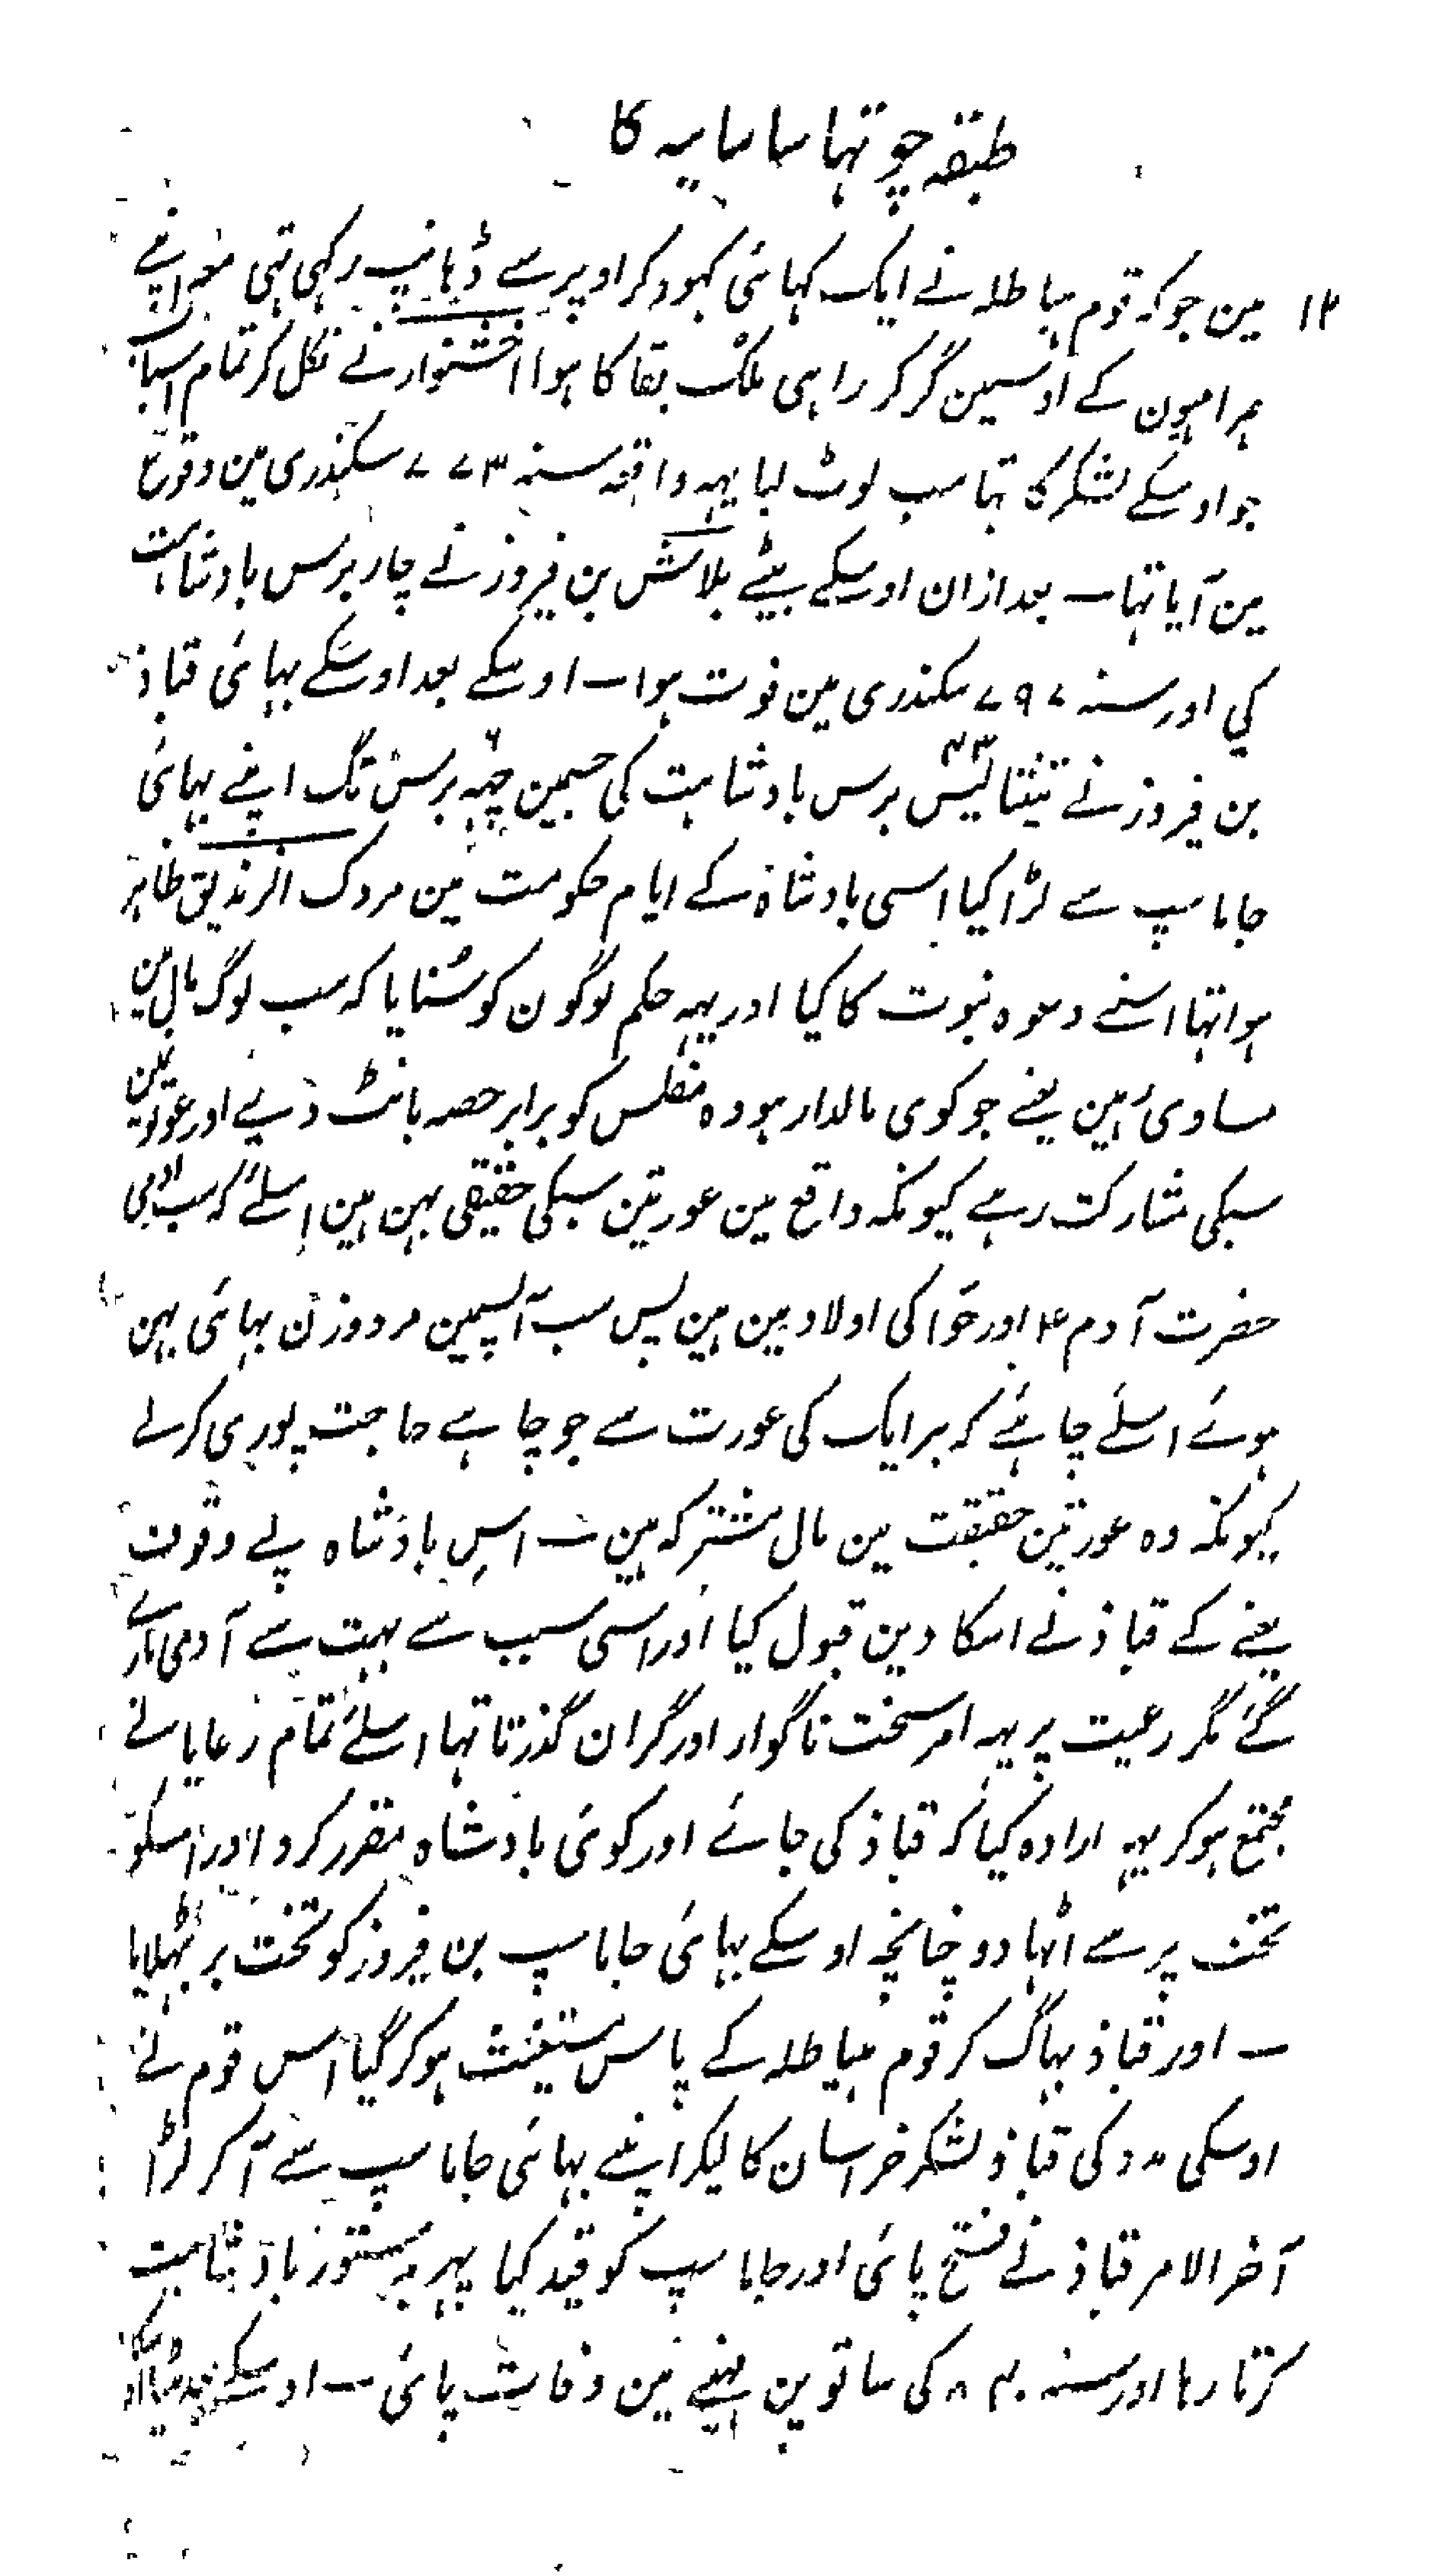 طبقہ چوتہا ساسانیہ کا
۱۲ مین جو کہ قوم ہیاطلہ نے ایک کہائی کہود کر اوپر سے ڈہانپ رکہی تہی معہ اپنے
ہمراہیون کے اوسمین گر کر راہی ملک بقا کا ہوا اخشنوار نے نکل کر تمام اسباب
جو اوسکے لشکر کا تہا سب لوٹ لیا یہہ واقعہ سنہ ۷۷۳ سکندری مین وقوع
مین آیا تہا ـ بعد ازان اوسکے بیٹے بلاش بن فیروز نے چار برس بادشاہت
کی اور سنہ ۷۹۷ سکندری مین فوت ہوا ـ اوسکے بعد اوسکے بہائی قباذ
بن فیروز نے تینتالیس ۴۳ برس بادشاہت کی جسمین چہہ ۶ برس تک اپنے بہائی
جاماسپ سے لڑا کیا اسی بادشاہ کے ایام حکومت مین مردک الزندیق ظاہر
ہوا تہا اسنے دعوہ نبوت کا کیا اور یہہ حکم لوگون کو سُنایا کہ سب لوگ مال مین
مساوی ہین یعنے جو کوی مالدار ہو وہ مفلس کو برابر حصہ بانٹ دیے اور عورتین مین
سبکی مشارکت رہے کیونکہ واقع مین عورتین سبکی حقیقی بہن ہین اِسلئے کہ سب آدمی
حضرت آدم ۴ اور حوا کی اولاد مین ہین پس سب آپسمین مرد و زن بہائی بہن
ہوئے اسلئے چاہئے کہ ہر ایک کی عورت سے جو چاہے حاجت پوری کرلے
کیونکہ وہ عورتین حقیقت مین مال مشترکہ ہین ـ اس بادشاہ بے وقوف
یعنے کے قباذ نے اسکا دین قبول کیا اور اسی سبب سے بہت سے آدمی مارے
گئے مگر رعیت پر یہہ امر سخت ناگوار اور گران گذرتا تہا اسلئے تمام رعایا نے
مجتمع ہو کر یہہ ارادہ کیا کہ قباذ کی جائے اور کوئی بادشاہ مقرر کرو اور اسکو
تخت پر سے اٹہا دو چنانچہ اوسکے بہائی جاماسپ بن فیروز کو تخت پر بٹہلایا
ـ اور قباذ بہاگ کر قوم ہیاطلہ کے پاس مستغیث ہو کر گیا اس قوم نے
اوسکی مدد کی قباذ لشکر خراسان کا لیکر اپنے بہائی جاماسپ سے آ کر لڑا
آخر الامر قباذ نے فتح پائی اور جاماسپ کو قید کیا پہر بدستور بادشاہت
کرتا رہا اور سنہ ۸۴۰ کی ساتوین مہینے مین وفات پائی ـ اوسکے بعد